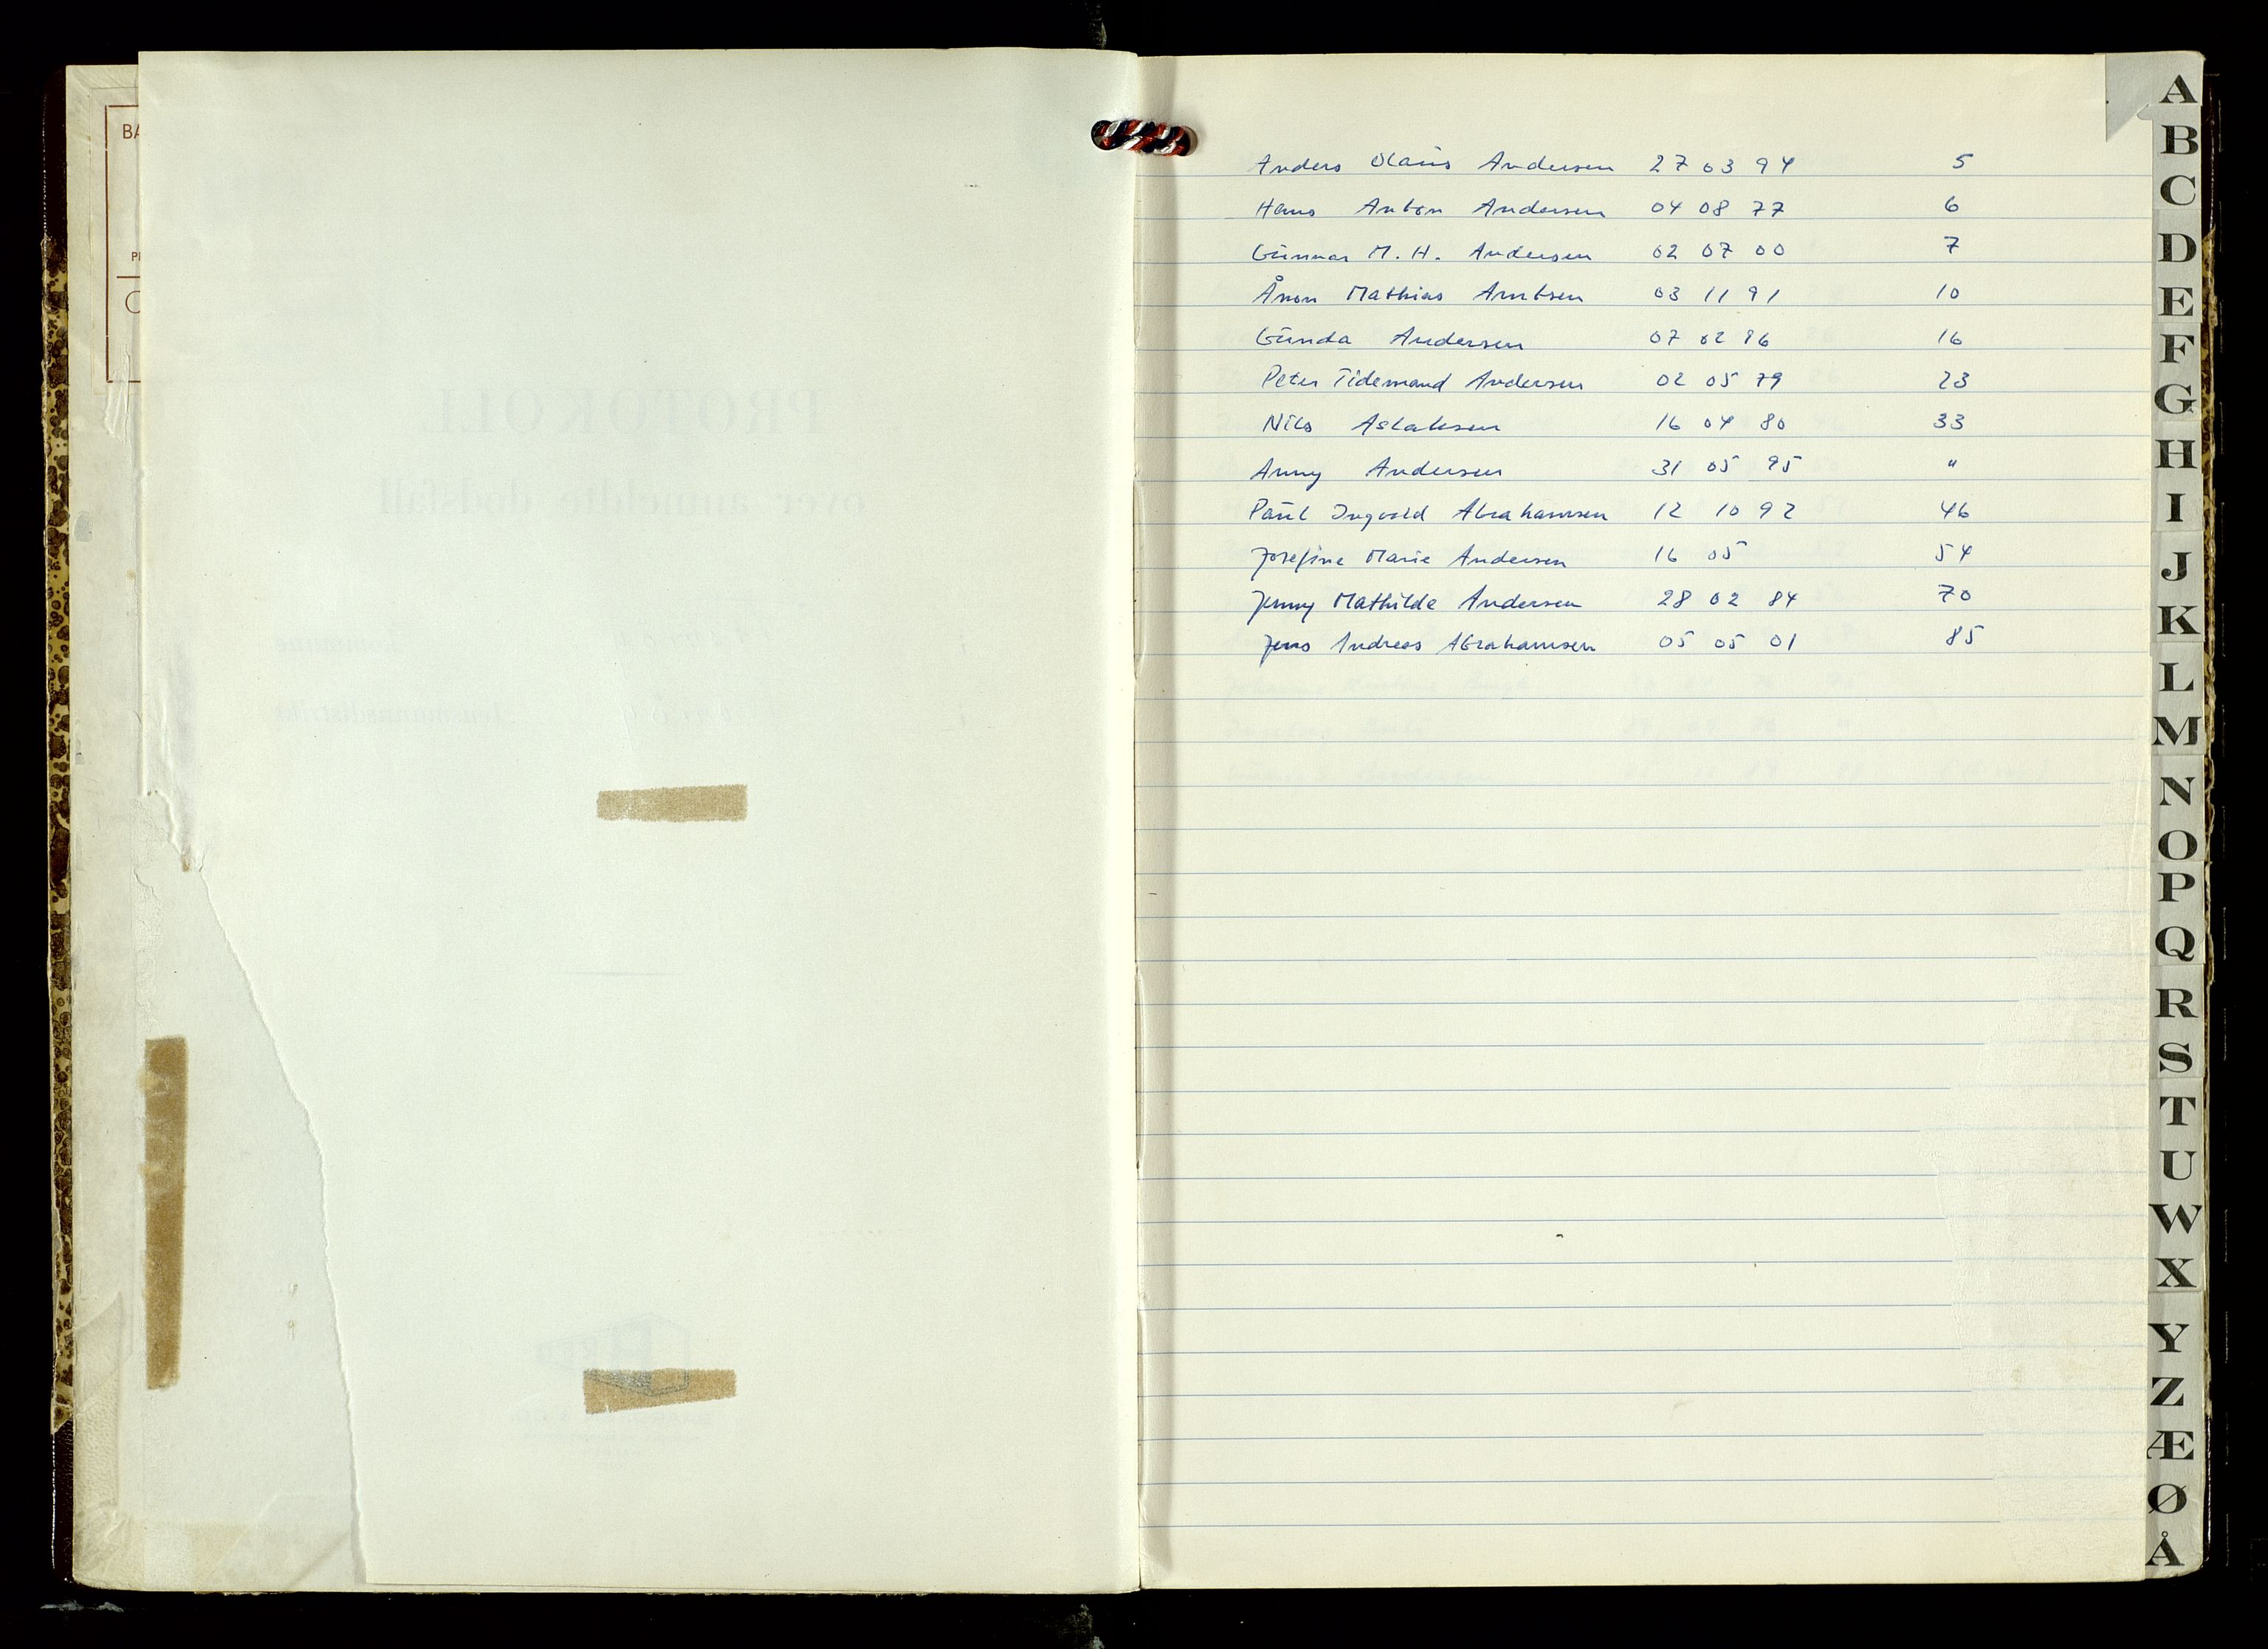 BA
Anders Olaus Andersen 27 03 94 5
Hans Anton Andersen 04 08 77 6
Gunnar M. H. Andersen 02 07 00 7
Ånon Mathias Arntsen 03 11 91 10
Gunda Andersen 07 02 86 16
Peter Tidemand Andersen 02 05 79 23
Nils Aslaksen 16 04 80 33
Anny Andersen 31 05 95 "
Paul Ingvald Abrahamsen 12 10 92 46
Josefine Marie Andersen 16 05 54
Jenny Mathilde Andersen 28 02 84 70
Jens Andreas Abrahamsen 05 05 01 85
A
B
C
D
E
F
G
H
I
J
K
L
M
N
O
P
Q
R
S
T
U
W
X
Y
Z
Æ
Ø
Å
PROTOKOLL
over anmeldte dødsfall
i kommune
i lensmannsdistrikt